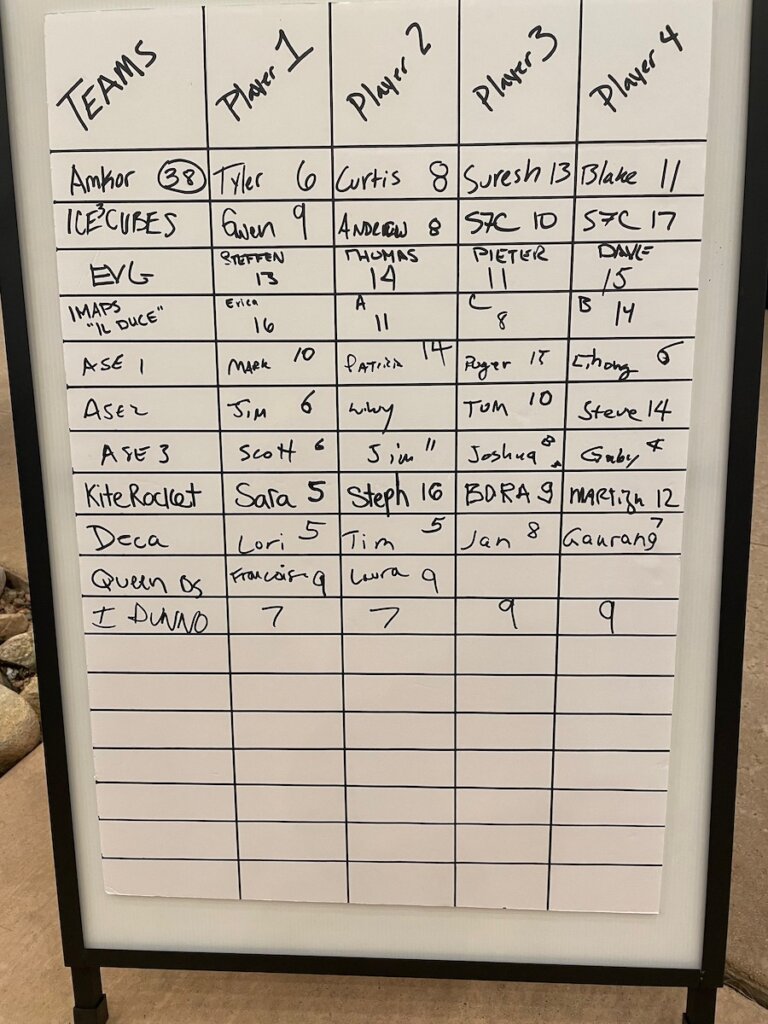 TEAMS Player 1 Player 2 Player 3 Player 4
Amkor 38 Tyler 6 Curtis 8 Suresh 13 Blake 11
ICE³CUBES Gwen 9 ANDREW 8 S7C 10 S7C 17
EVG STEFFEN 13 THOMAS 14 PIETER 11 DAVE 15
IMAPS "IL DUCE" Erica 16 A 11 C 8 B 14
ASE 1 MARK 10 PATRICK 14 Roger 6
ASE 2 Jim 6 TOM 10 Steve 14
ASE 3 Scott 6 Jim 11 Joshua 8 Gaby 4
KiteRocket Sara 5 Steph 16 BORA 9 MARTIJN 12
Deca Lori 5 Tim 5 Jan 8 Gaurang 7
Queen Bs Francoise 9 Laura 9
I DUNNO 7 7 9 9